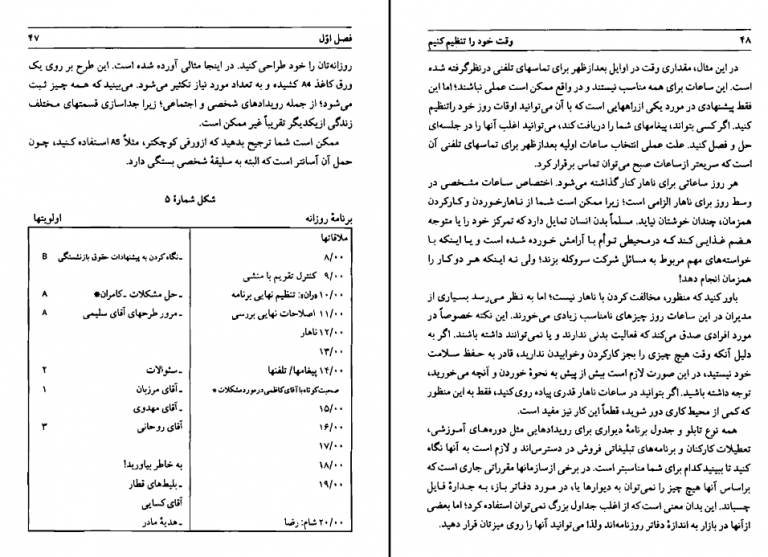 فصل اوّل ۴۷
روزانه‌تان را خود طراحی کنید. در اینجا مثالی آورده شده است. این طرح بر روی یک
ورق کاغذ A4 کشیده و به تعداد مورد نیاز تکثیر می‌شود. می‌بینید که همه چیز ثبت
می‌شود؛ از جمله رویدادهای شخصی و اجتماعی؛ زیرا جداسازی قسمتهای مختلف
زندگی ازیکدیگر تقریباً غیر ممکن است.
ممکن است شما ترجیح بدهید که ازورقی کوچکتر، مثلاً A5 استفاده کنید، چون
حمل آن آسانتر است که البته به سلیقهٔ شخصی بستگی دارد.
شکل شمارهٔ ۵
برنامهٔ روزانه اولویتها
ملاقاتها
۸/۰۰ ـ نگاه کردن به پیشنهادات حقوق بازنشستگی B
۹/۰۰ کنترل تقویم با منشی
۱۰/۰۰ وراه: تنظیم نهایی برنامه ـ حل مشکلات ـ کامران* A
۱۱/۰۰ اصلاحات نهایی بررسی ـ مرور طرحهای آقای سلیمی A
۱۲/۰۰ ناهار
۱۳/۰۰
۱۴/۰۰ پیغامها/ تلفنها ـ سئوالات ۲
صحبت کوتاه با آقای کاظمی در مورد مشکلات * ـ آقای مرزبان ۱
۱۵/۰۰ ـ آقای مهدوی
۱۶/۰۰ آقای روحانی ۳
۱۷/۰۰
۱۸/۰۰ به خاطر بیاورید!
۱۹/۰۰ ـ بلیط‌های قطار
آقای کسایی
۲۰/۰۰ شام: رضا ـ هدیهٔ مادر
۴۸ وقت خود را تنظیم کنیم
در این مثال، مقداری وقت در اوایل بعدازظهر برای تماسهای تلفنی درنظرگرفته شده
است. این ساعات برای همه مناسب نیستند و در واقع ممکن است عملی نباشند؛ اما این
فقط پیشنهادی در مورد یکی ازراههایی است که با آن می‌توانید اوقات روز خود راتنظیم
کنید. اگر کسی بتواند، پیغامهای شما را دریافت کند، می‌توانید اغلب آنها را در جلسه‌ای
حل و فصل کنید. علت عملی انتخاب ساعات اولیه بعدازظهر برای تماسهای تلفنی آن
است که سریعتر ازساعات صبح می‌توان تماس برقرار کرد.
هر روز ساعاتی برای ناهار کنار گذاشته می‌شود. اختصاص ساعات مشخصی در
وسط روز برای ناهار الزامی است؛ زیرا ممکن است شما از ناهارخوردن و کارکردن
همزمان، چندان خوشتان نیاید. مسلماً بدن انسان تمایل دارد که تمرکز خود را متوجه
هضم غذایی کند که درمحیطی توأم با آرامش خورده شده است و یا اینکه با
خواسته‌های مهم مربوط به مسائل شرکت سروکله بزند؛ ولی نه اینکه هر دو کار را
همزمان انجام دهد!
باور کنید که منظور، مخالفت کردن با ناهار نیست؛ اما به نظر می‌رسد بسیاری از
مدیران در این ساعات روز چیزهای نامناسب زیادی می‌خورند. این نکته خصوصاً در
مورد افرادی صدق می‌کند که فعالیت بدنی ندارند و یا نمی‌توانند داشته باشند. اگر به
دلیل آنکه وقت هیچ چیزی را بجز کارکردن وخوابیدن ندارید، قادر به حفظ سلامت
خود نیستید، در این صورت لازم است بیش از پیش به نحوهٔ خوردن و آنچه می‌خورید،
توجه داشته باشید. اگر بتوانید در ساعات ناهار قدری پیاده روی کنید، فقط به این منظور
که کمی از محیط کاری دور شوید، قطعاً این کار نیز مفید است.
همه نوع تابلو و جدول برنامهٔ دیواری برای رویدادهایی مثل دوره‌های آموزشی،
تعطیلات کارکنان و برنامه‌های تبلیغاتی فروش در دسترس‌اند و لازم است به آنها نگاه
کنید تا ببینید کدام برای شما مناسبتر است. در برخی ازسازمانها مقرراتی جاری است که
براساس آنها هیچ چیز را نمی‌توان به دیوارها یا، در مورد دفاتر باز، به جدارهٔ فایل
چسباند. این بدان معنی است که از اغلب جداول بزرگ نمی‌توان استفاده کرد؛ اما بعضی
از آنها در بازار به اندازهٔ دفاتر روزنامه‌اند ولذا می‌توانید آنها را روی میزتان قرار دهید.